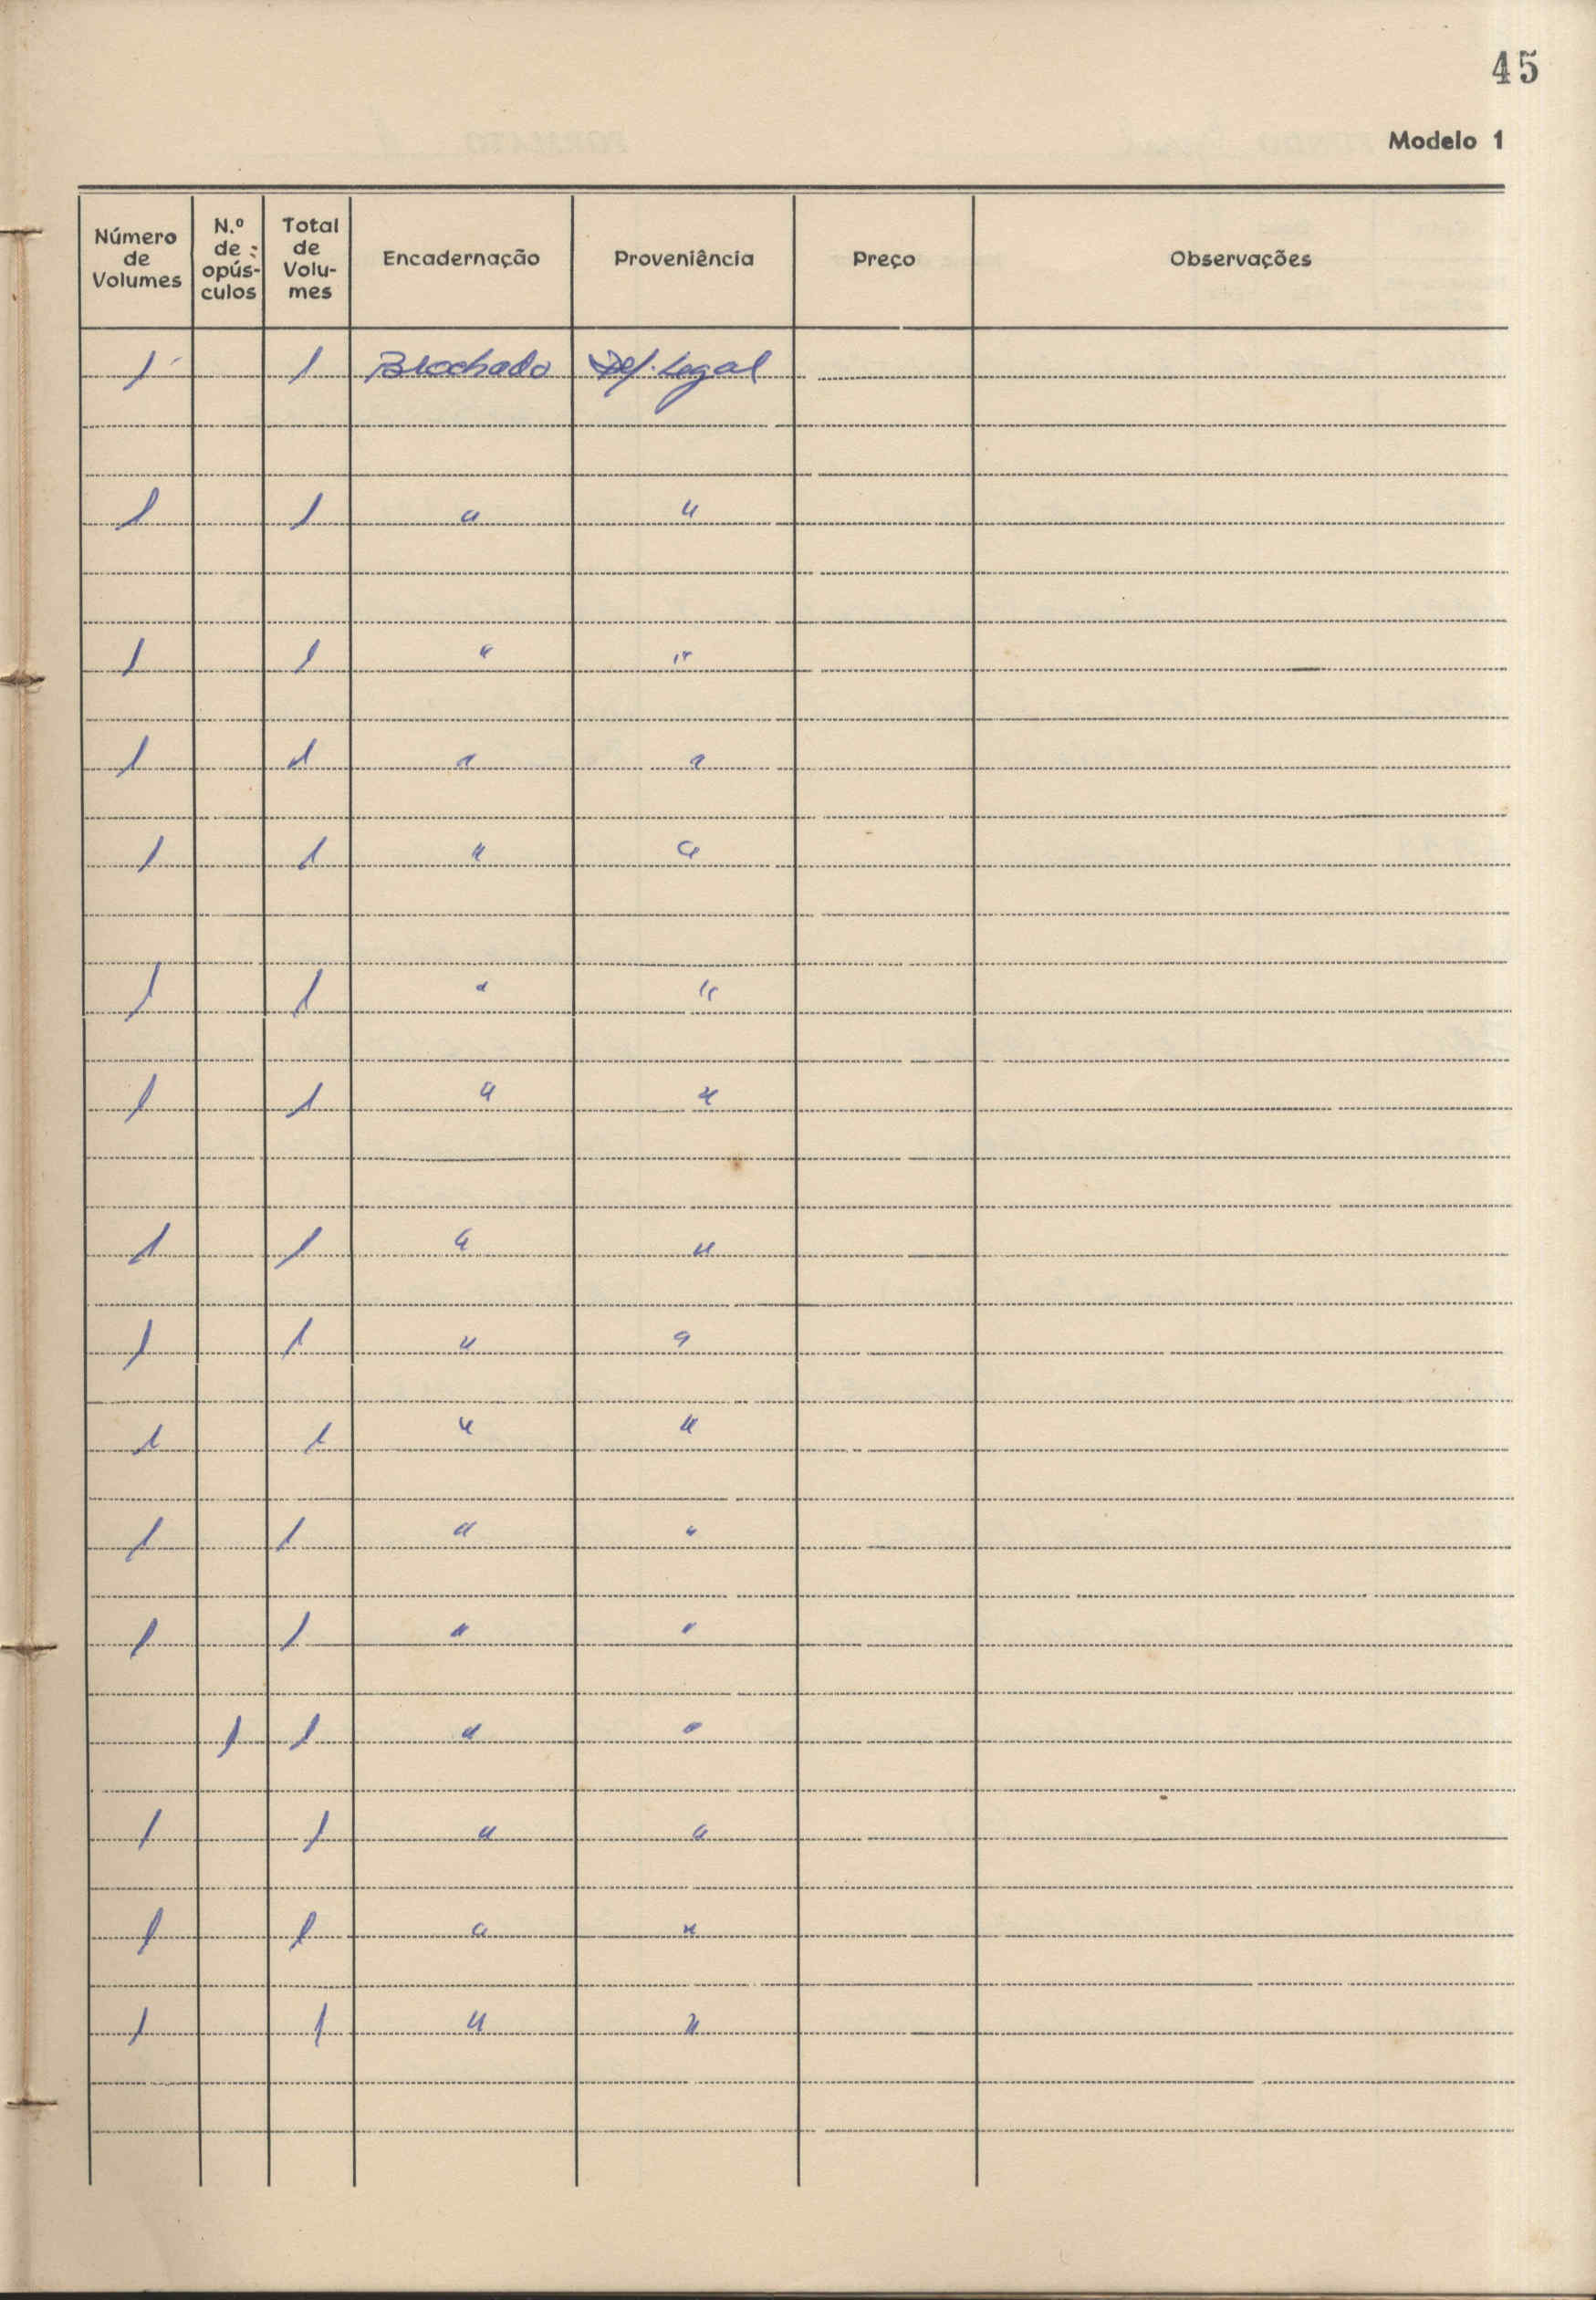 45
Modelo 1
Número de Volumes | N.º de opús-culos | Total de Volu-mes | Encadernação | Proveniência | Preço | Observações
1 | | 1 | Brochado | Dep. Legal
1 | | 1 | " | "
1 | | 1 | " | "
1 | | 1 | " | "
1 | | 1 | " | "
1 | | 1 | " | "
1 | | 1 | " | "
1 | | 1 | " | "
1 | | 1 | " | "
1 | | 1 | " | "
1 | | 1 | " | "
1 | | 1 | " | "
| 1 | 1 | " | "
1 | | 1 | " | "
1 | | 1 | " | "
1 | | 1 | " | "